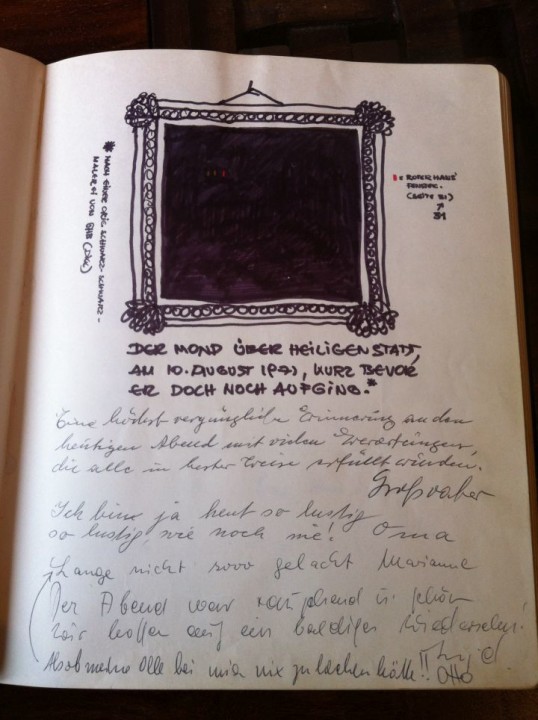 * NACH EINER ORIG SCHWARZ-SCHWARZ-
MALEREI VON
DER MOND ÜBER HEILIGENSTADT,
AM 10. AUGUST 1971, KURZ BEVOR
ER DOCH NOCH AUFGING.*
Eine höchst vergnügliche Erinnerung an den
heutigen Abend mit vielen Erwartungen,
die alle in bester Weise erfüllt wurden.
Großvater
Ich bin ja heut so lustig
so lustig, wie noch nie! Oma
Lange nicht sooo gelacht Marianne
Der Abend war u. schön
Wir hoffen auf ein baldiges Wiedersehen!
Als ob meine Olle bei mir nix zu lachen hätte!! Otto